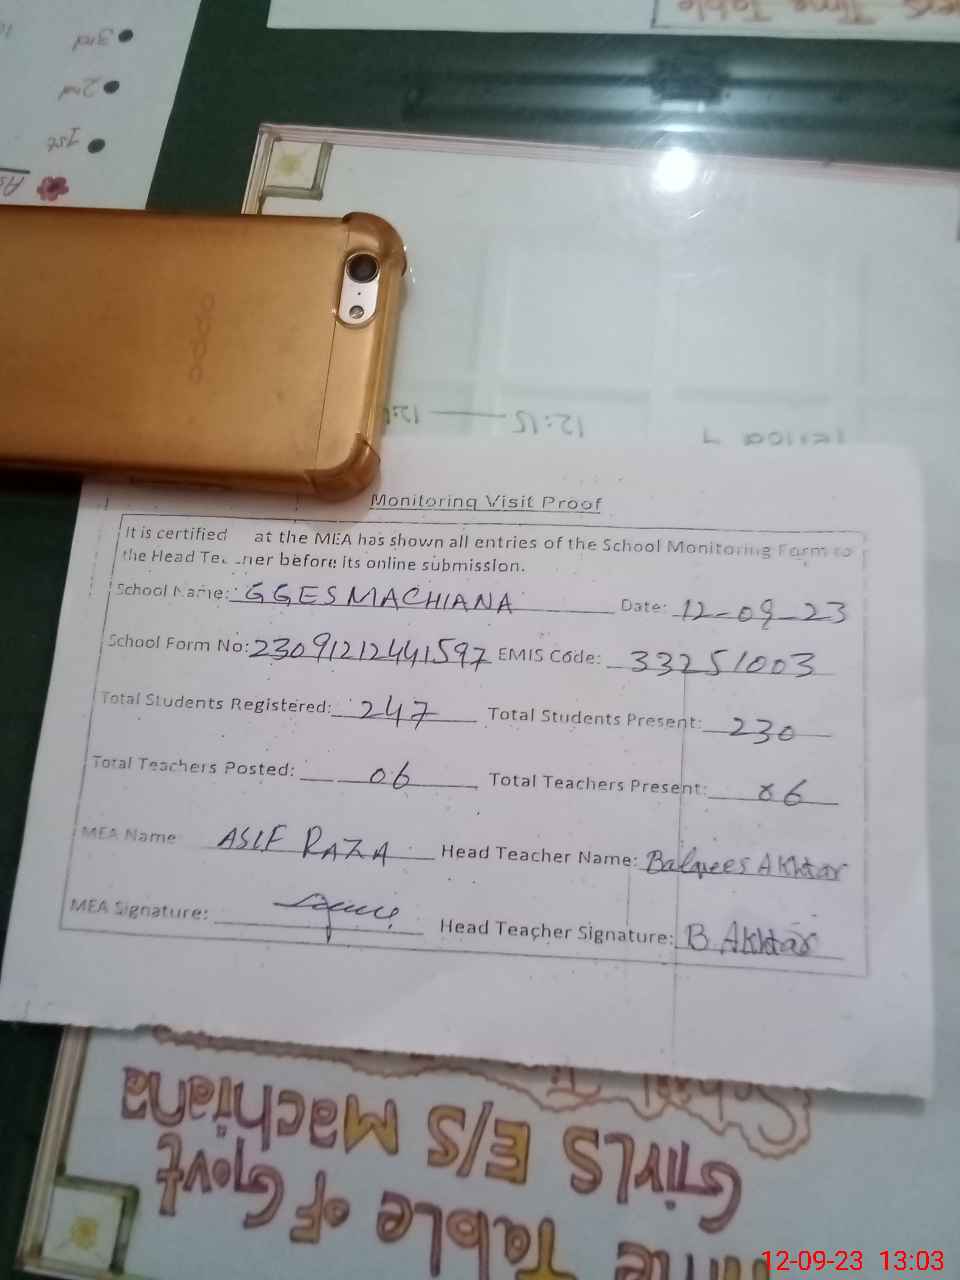 3rd
2nd
1st
Time Table
oppo
12:15
Period 7
Monitoring Visit Proof
It is certified at the MEA has shown all entries of the School Monitoring Form to
the Head Te ner before its online submission.
School Name: GGES MACHIANA Date: 12-09-23
School Form No: 2309121244 1597 EMIS Code: 33251003
Total Students Registered: 247 Total Students Present: 230
Total Teachers Posted: 06 Total Teachers Present: 06
MEA Name ASIF RAZA Head Teacher Name: Balqees Akhtar
MEA Signature: Head Teacher Signature: B. Akhtar
Time Table of Govt
Girls E/S Machiana
School
12-09-23 13:03